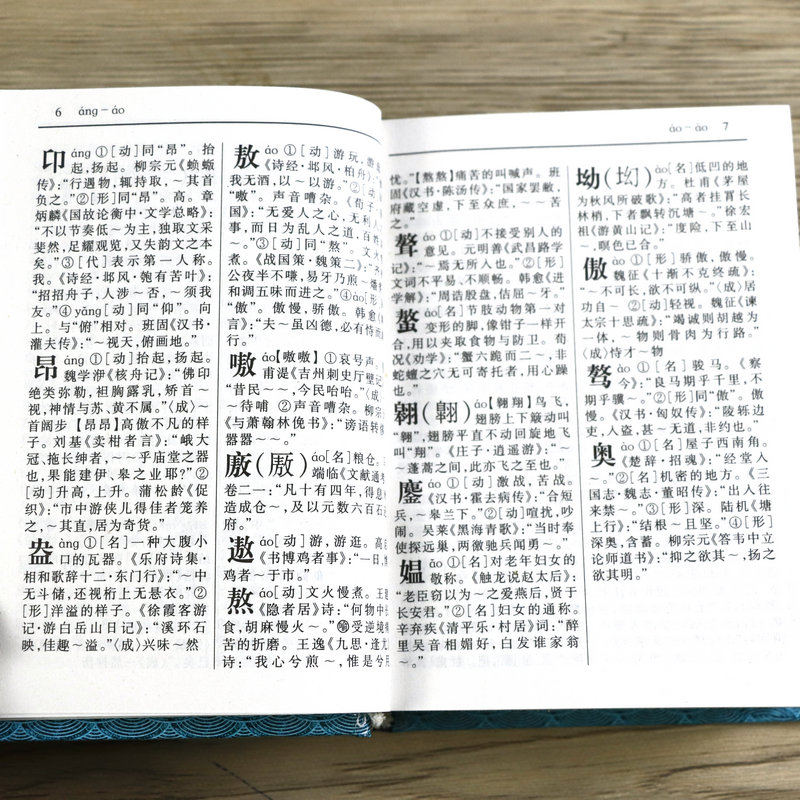 6 áng－áo
卬 áng ①[动]同“昂”。抬
起,扬起。柳宗元《蝜蝂
传》:“行遇物,辄持取,～其首
负之。”②[形]同“昂”。高。章
炳麟《国故论衡中·文学总略》:
“不以节奏低～为主,独取文采
斐然,足耀观览,又失韵文之本
矣。”③[代]表示第一人称。
我。《诗经·邶风·匏有苦叶》:
“招招舟子,人涉～否,～须我
友。”④yǎng[动]同“仰”。向
上。与“俯”相对。班固《汉书·
灌夫传》:“～视天,俯画地。”
昂 áng ①[动]抬起,扬起。
魏学洢《核舟记》:“佛印
绝类弥勒,袒胸露乳,矫首～
视,神情与苏、黄不属。”〈成〉～
首阔步 【昂昂】高傲不凡的样
子。刘基《卖柑者言》:“峨大
冠、拖长绅者,～～乎庙堂之器
也,果能建伊、皋之业耶?”②
[动]升高,上升。蒲松龄《促
织》:“市中游侠儿得佳者笼养
之,～其直,居为奇货。”
盎 àng ①[名]一种大腹小
口的瓦器。《乐府诗集·
相和歌辞十二·东门行》:“～中
无斗储,还视桁上无悬衣。”②
[形]洋溢的样子。《徐霞客游
记·游白岳山日记》:“溪环石
映,佳趣～溢。”〈成〉兴味～然
敖 áo ①[动]游玩,游
《诗经·邶风·柏舟》:
我无酒,以～以游。”②
“嗷”。声音嘈杂。《荀子·
国》:“无爱人之心,无利人
事,而日为乱人之道,百姓
～。”③[动]同“熬”。文火
煮。《战国策·魏策二》:“齐
公夜半不嗛,易牙乃煎～燔
和调五味而进之。”④ào[形]
“傲”。傲慢,骄傲。韩愈《
言》:“夫～虽凶德,必有恃而
行。”
嗷 áo【嗷嗷】①哀号声。
甫湜《吉州刺史厅壁记
“昔民～～,今民咍咍。”〈
～待哺 ②声音嘈杂。柳宗
《与萧翰林俛书》:“谤语转侈
嚣嚣～～。”
廒(厫) áo[名]粮仓。
端临《文献通考
卷二一:“凡十有四年,得息
造成仓～,及以元数六百石
府。”
遨 áo[动]游,游逛。高
《书博鸡者事》:“一日,
鸡者～于市。”
熬 áo[动]文火慢煮。王
《隐者居》诗:“何物中
食,胡麻慢火～。”㊕受逆境
苦的折磨。王逸《九思·逢尤
诗:“我心兮煎～,惟是兮用
áo－ào 7
忧。”【熬熬】痛苦的叫喊声。班
固《汉书·陈汤传》:“国家罢敝,
府藏空虚,下至众庶,～～苦
之。”
聱 áo ①[动]不接受别人的
意见。元明善《武昌路学
记》:“～焉无所入也。”②[形]
文词不平易,不顺畅。韩愈《进
学解》:“周诰殷盘,佶屈～牙。”
螯 áo[名]节肢动物第一对
变形的脚,像钳子一样开
合,用以夹取食物与防卫。荀
况《劝学》:“蟹六跪而二～,非
蛇蟺之穴无可寄托者,用心躁
也。”
翱(翺) áo【翱翔】鸟飞,
翅膀上下簸动叫
“翱”,翅膀平直不动回旋地飞
叫“翔”。《庄子·逍遥游》:“～
～蓬蒿之间,此亦飞之至也。”
鏖 áo ①[动]激战,苦战。
《汉书·霍去病传》:“合短
兵,～皋兰下。”②[动]喧扰,吵
闹。吴莱《黑海青歌》:“当时奉
使探远巢,两激驰兵闻勇～。”
媪 ǎo ①[名]对老年妇女的
敬称。《触龙说赵太后》:
“老臣窃以为～之爱燕后,贤于
长安君。”②[名]妇女的通称。
辛弃疾《清平乐·村居》词:“醉
里吴音相媚好,白发谁家翁
～。”
坳(㘭) ào[名]低凹的地
方。杜甫《茅屋
为秋风所破歌》:“高者挂罥长
林梢,下者飘转沉塘～。”徐宏
祖《游黄山记》:“度险,下至山
～,暝色已合。”
傲 ào ①[形]骄傲,傲慢。
魏征《十渐不克终疏》:
“～不可长,欲不可纵。”〈成〉居
功自～ ②[动]轻视。魏征《谏
太宗十思疏》:“竭诚则胡越为
一体,～物则骨肉为行路。”
〈成〉恃才～物
骜 ào ①[名]骏马。《察
今》:“良马期乎千里,不
期乎骥～。”②[形]同“傲”。傲
慢。《汉书·匈奴传》:“陵轹边
吏,入盗,甚～无道,非约也。”
奥 ào ①[名]屋子西南角。
《楚辞·招魂》:“经堂入
～。”②[名]机密的地方。《三
国志·魏志·董昭传》:“出入往
来禁～。”③[形]深。陆机《塘
上行》:“结根～且坚。”④[形]
深奥,含蓄。柳宗元《答韦中立
论师道书》:“抑之欲其～,扬之
欲其明。”